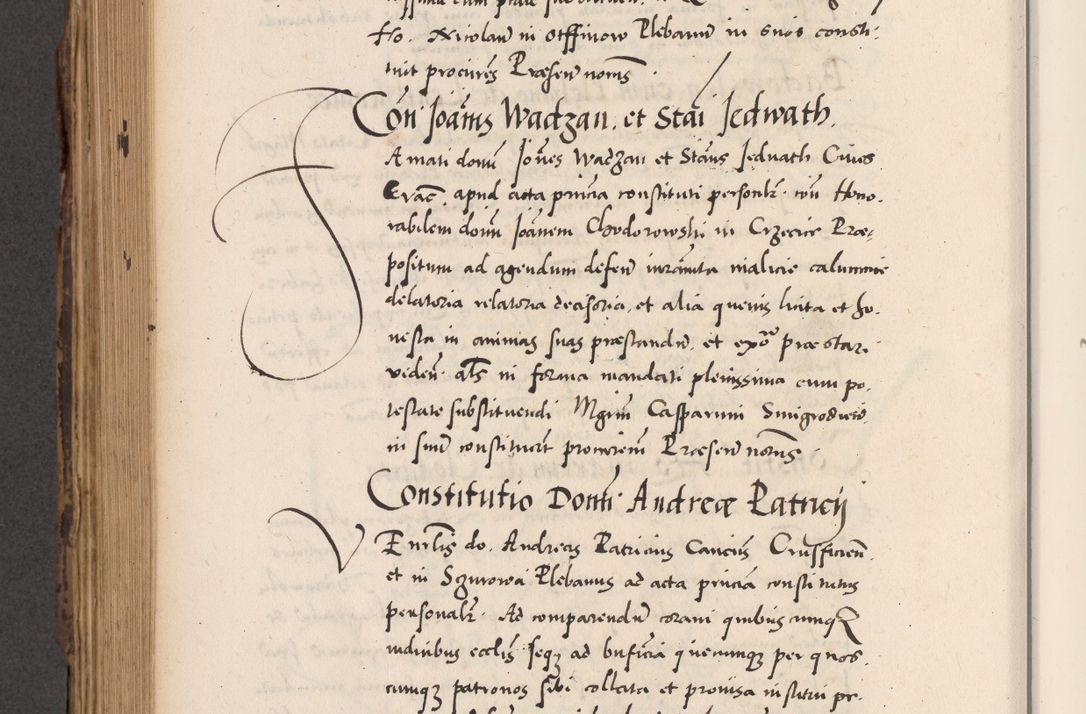 Ho. Nicolaū in Offinow Plebanū in suos consti-
tuit procures Præsen̄ notris
Con Joānis Wadzan. et Stāi Jedwath.
Amati domī Joñes Wadzan et Stāus Jedvath Cives
Crac̄. apud acta pn̄tia constituti personlr. suū Hono-
rabilem domī Joānem Chodorowski in Crzecice Præ-
positum ad agendum defen̄ iurān̄ta malicie calumnie
delatoria relatoria decisoria, et alia quevis licita et ho-
nesta in animas suas præstandū, et expo præstari
viden̄. als in forma mandati plenissima cum po-
testate substituendi Mgrm̄ Casparum
in suū constituerūt procurem̄ Præsen̄ notris
Constitutio Domī Andreæ Patricij
Venrlis do. Andreas Patricius Canc̄us Crusficien̄.
et in Sgurowa Plebanus ad acta pn̄cia constitutus
personalr. Ad comparendū coram quibuscumq
iudicibus ecclis seqz ad bn̄ficia quecumqz per quos-
cumqz patronos sibi collata et provisa institu pe-